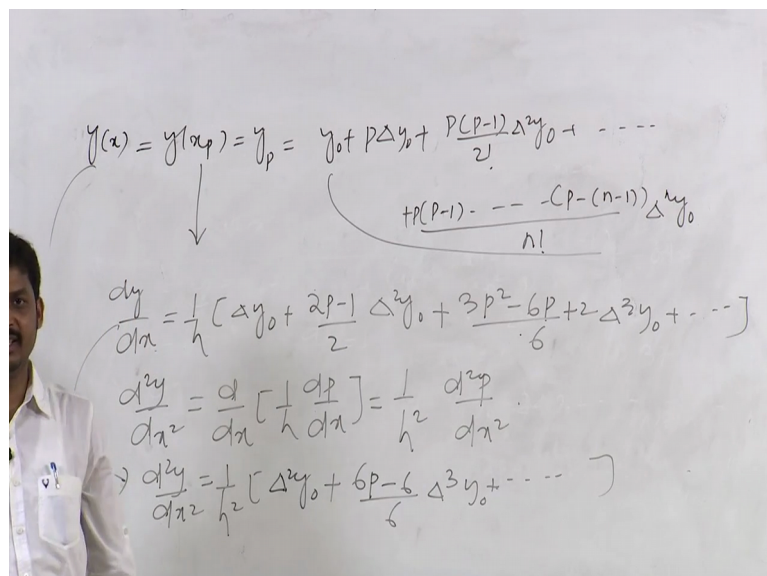 y(x) = y(x_p) = y_p = y₀ + pΔy₀ + P(P-1)/2! Δ²y₀ + - - - -
+P(P-1) - - - - - (P-(n-1))/n! Δⁿy₀
dy/dx = 1/h [Δy₀ + 2P-1/2 Δ²y₀ + 3P²-6P+2/6 Δ³y₀ + - - - ]
d²y/dx² = d/dx [1/h dp/dx] = 1/h² d²p/dx² .
⇒ d²y/dx² = 1/h² [Δ²y₀ + 6P-6/6 Δ³y₀ + - - - - ]